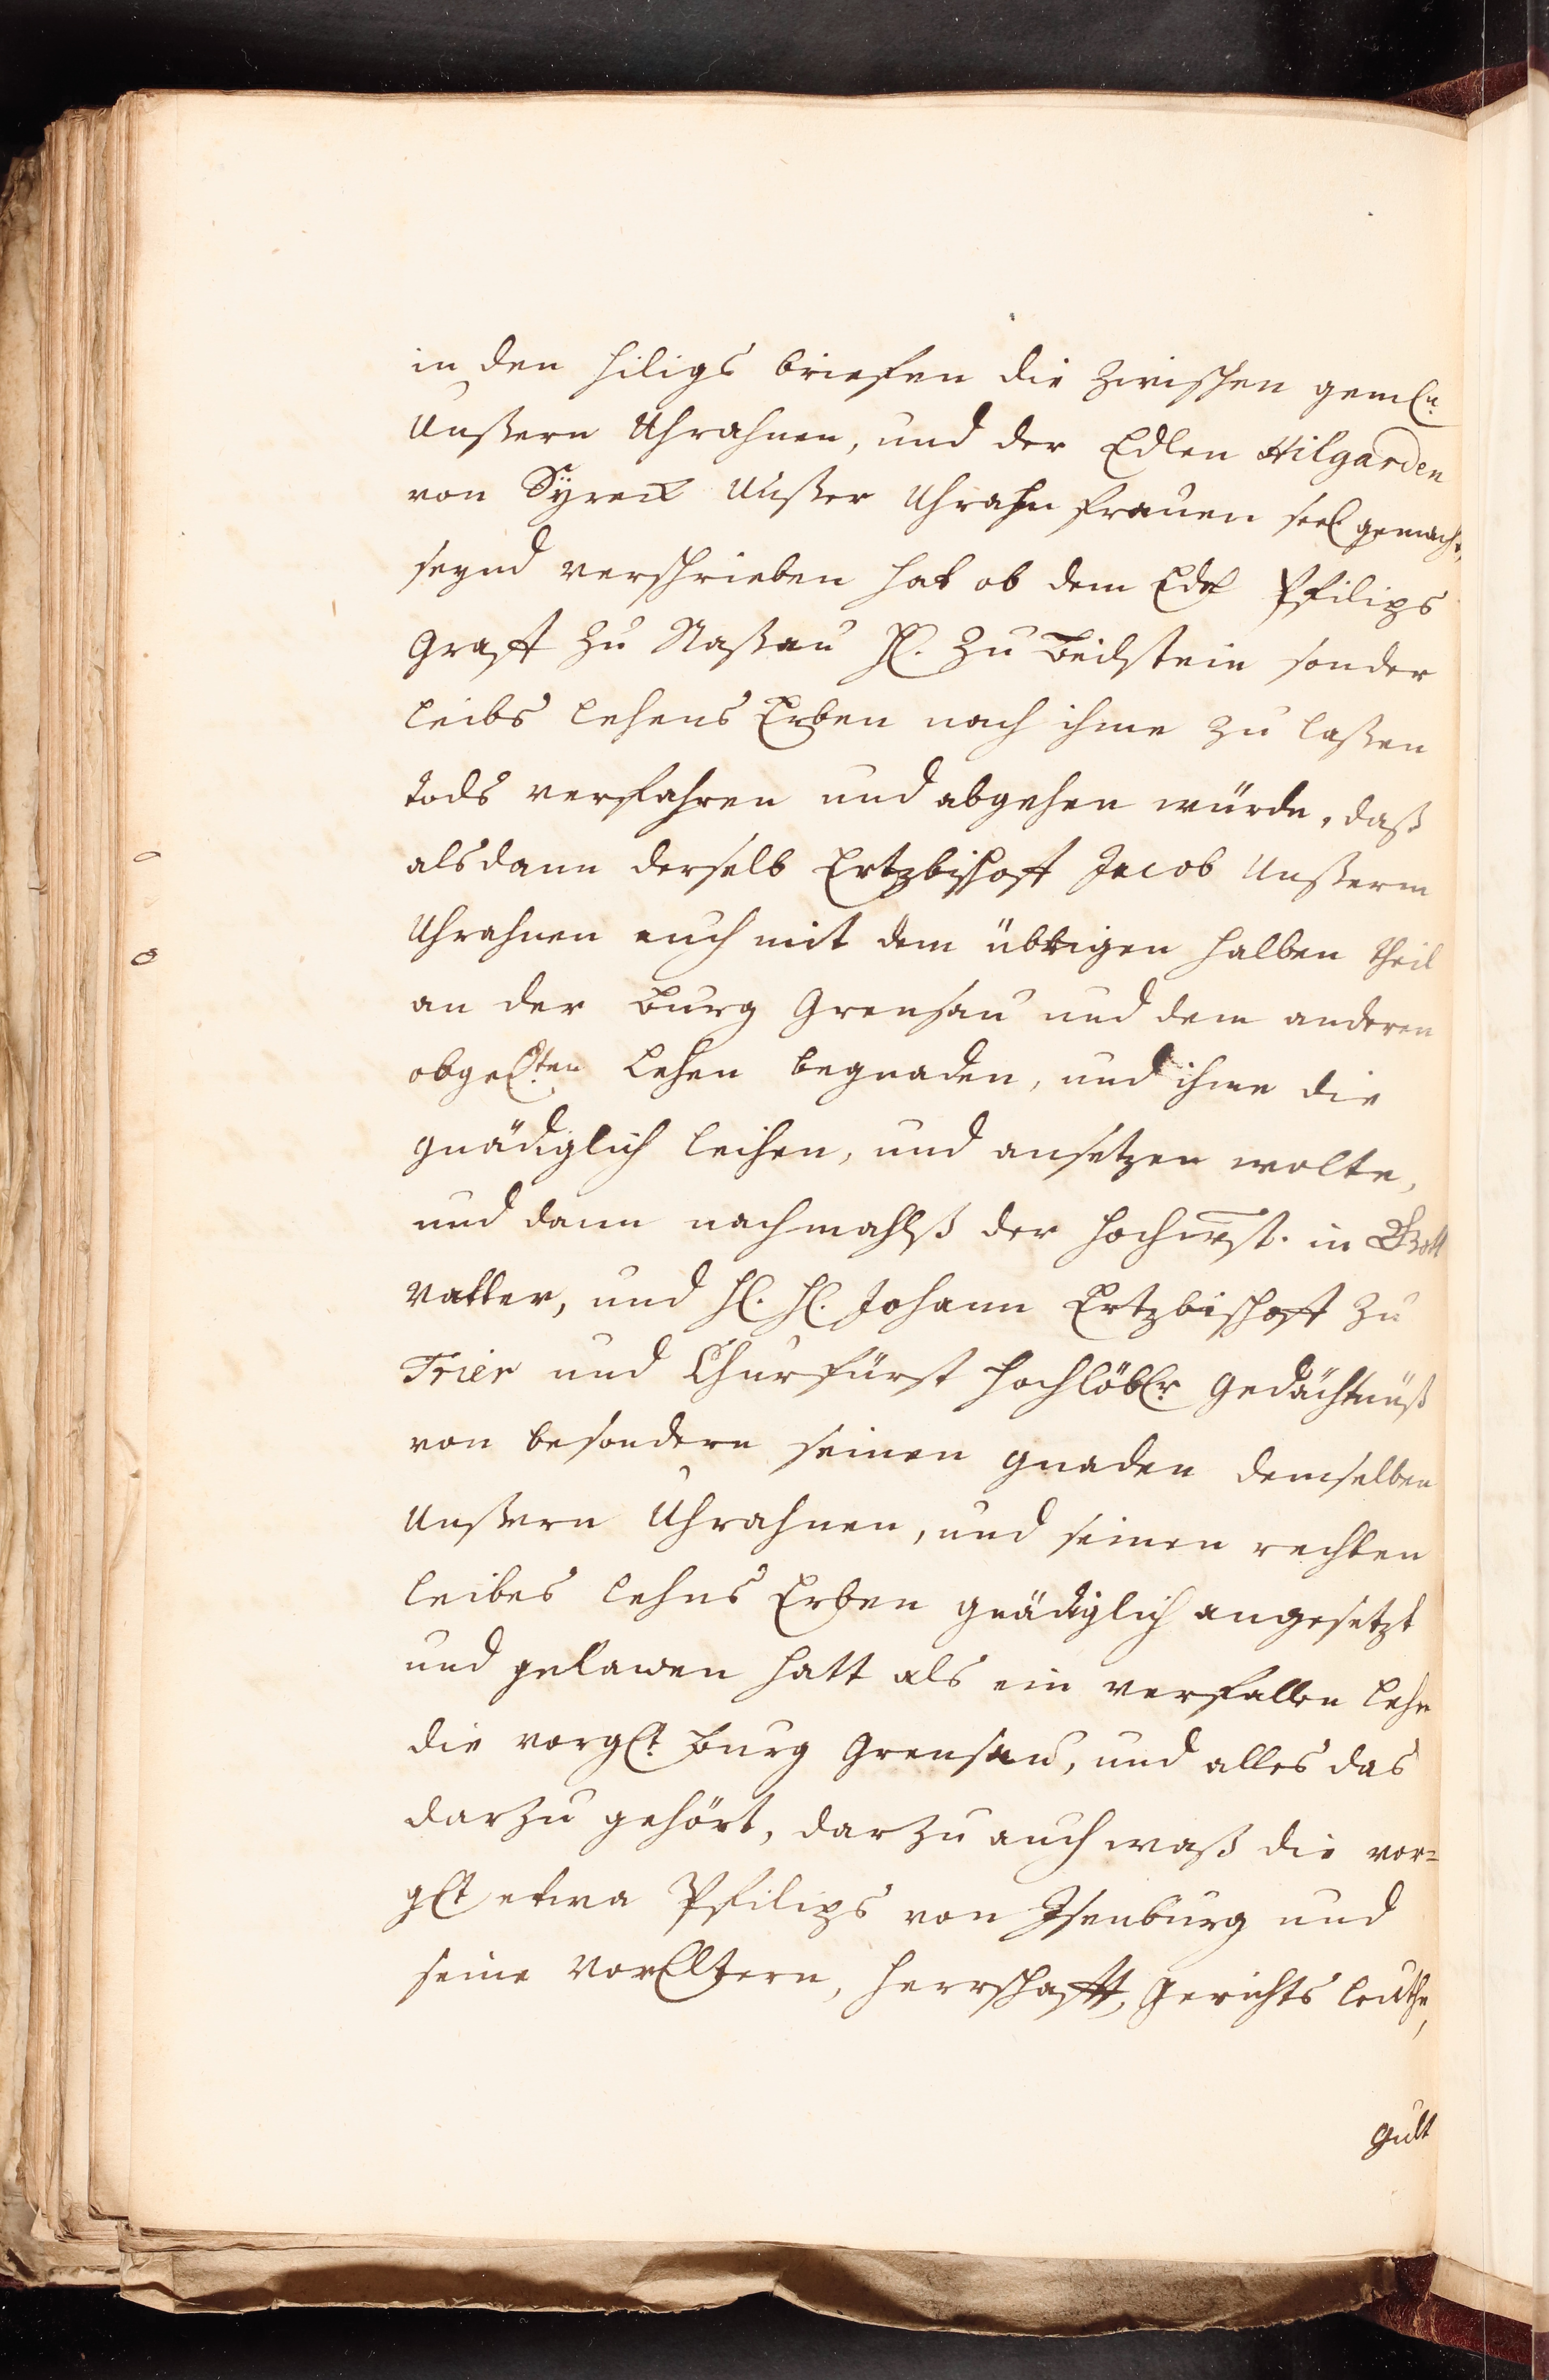 in den hiligs briefen die zwischen gemln.
Unßern Uhrahnen, und der Edlen Hilgarden
von Syreck Unßer Uhrahn frauen seel gemacht,
seynd verschrieben hat ob dem Edel Philips
Graff zu Naßau H. zu Beilstein sonder
leibs lehens Erben nach ihme zu laßen
tods verfahren und abgehen würde, daß
alsdann derselb Ertzbischoff Jacob Unßerm
Uhrahnen auch mit dem übrigen halben theil
an der Burg Grensau und dem anderen
obgelten Lehen begnaden, und ihme die
gnädiglich leihen, und ansetzen wolte,
und dann nachmahlß der hochwst. in Gott
Vatter, und H. H. Johann Ertzbischoff zu
Trier und Churfürst hochlöblr gedächtnüß
von besondern seinen gnaden demselben
Unßern Uhrahnen, und seinen rechten
leibes lehns Erben gnädiglich angesetzt
und gelawen hatt als ein verfallen lehn
die vorglt Burg Grensau, und alles das
darzu gehört, darzu auch waß die vor=
glt etwa Philips von Isenburg und
seine VorEltern, herrschafft, gerichts leuthe,
gult